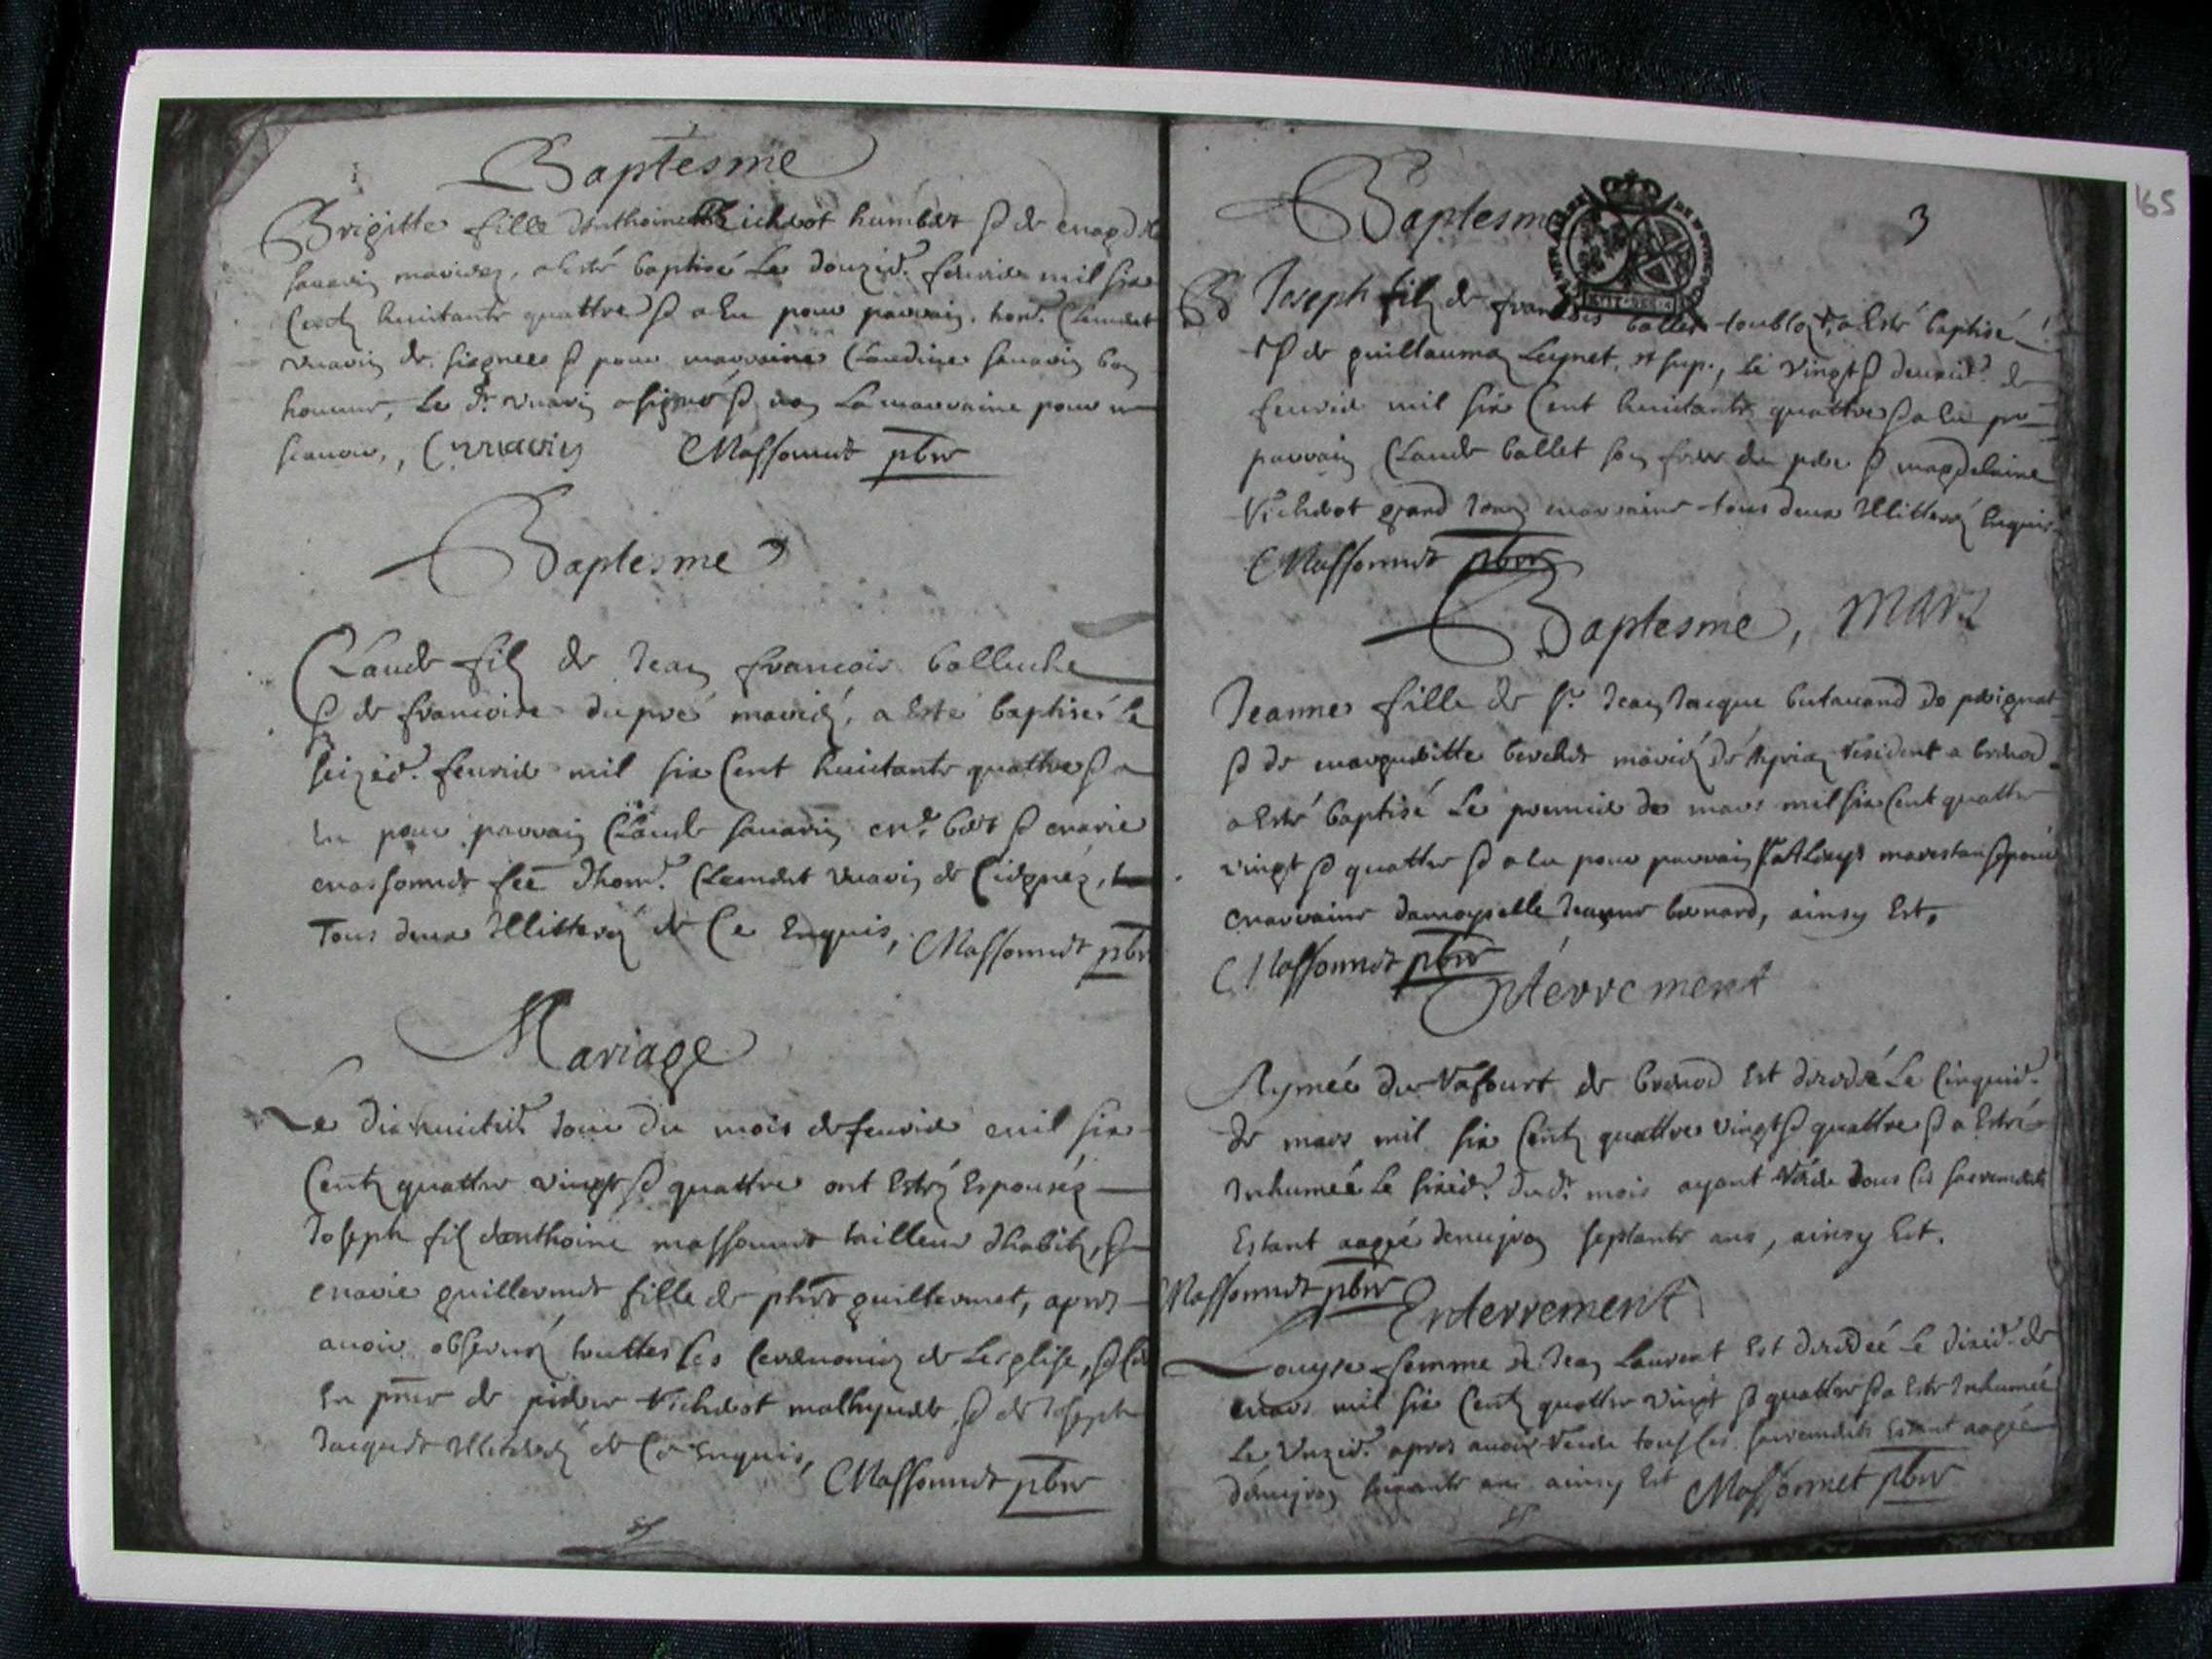 Baptesme
Brigitte fille danthoine Richerot humbert et de
mariez, a esté baptisé le douzie. feurier mil six
Cent huictante quattre et a eu pour parrain. hon. Claudet
vuarin de et pour marraine Claudine sauarin
le dt. vuarin a signé et non la marraine pour ne
scauoir, C vuarin Massonnet pbre
Baptesme
Claude filz de Jean francois balluche
et de francoise dupré mariés, a esté baptisé le
seizie. feurier mil six Cent huictante quattre et a
eu pour parrain Claude sauarin et marie
massonnet fee dhon. Claudet vuarin de
Tous deux Illitterés de Ce Enquis, Massonnet pbre
Mariage
Le dixhuictie. Jour du mois de feurier mil six
Centz quattre vingt et quattre ont Estés Espousés
Joseph filz danthoine massonnet tailleur dhabitz, et
marie guillermet fille de guillermet, apres
auoir obserué touttes les Ceremonies de Leglise, et Ce
En pnce de pierre Richerot et de Joseph
Jacquet Illiterés de Ce Enquis, Massonnet pbre
Baptesme
3
165
Joseph filz de francois ballet a Esté baptisé
et de guillauma Leynet, le vingt et deuxie. de
feurier mil six Cent huictante quattre et a eu pr
parrain Claude ballet son frere du pere et magdelaine
Richerot grand marraine tous deux Illitterés Enquis
Massonnet pbre
Baptesme, Mars
Jeanne fille de sr. Jean Jacque butauand de
et de margueritte mariés resident a brenod
a Esté baptisé Le premier de mars mil six Cent quattre
vingt et quattre et a eu pour parrain
marraine damoyselle Jeanne bernard, ainsy Est.
Massonnet pbre
Enterrement
Aymée du de brenod Est decedée Le Cinquie.
de mars mil six Centz quattre vingt et quattre et a Esté
Inhumée Le sixie. dudt. mois ayant tous les sacrements
Estant aagée denuyron septante ans, ainsy Est.
Massonnet pbre
Enterrement
Louyse femme de Jean Laurent Est decedée Le dixie. de
mars mil six Centz quattre vingt et quattre et a Esté Inhumée
Le Unzie. apres auoir tous les sacrements Estant aagée
denuyron ans ainsy Est Massonnet pbre